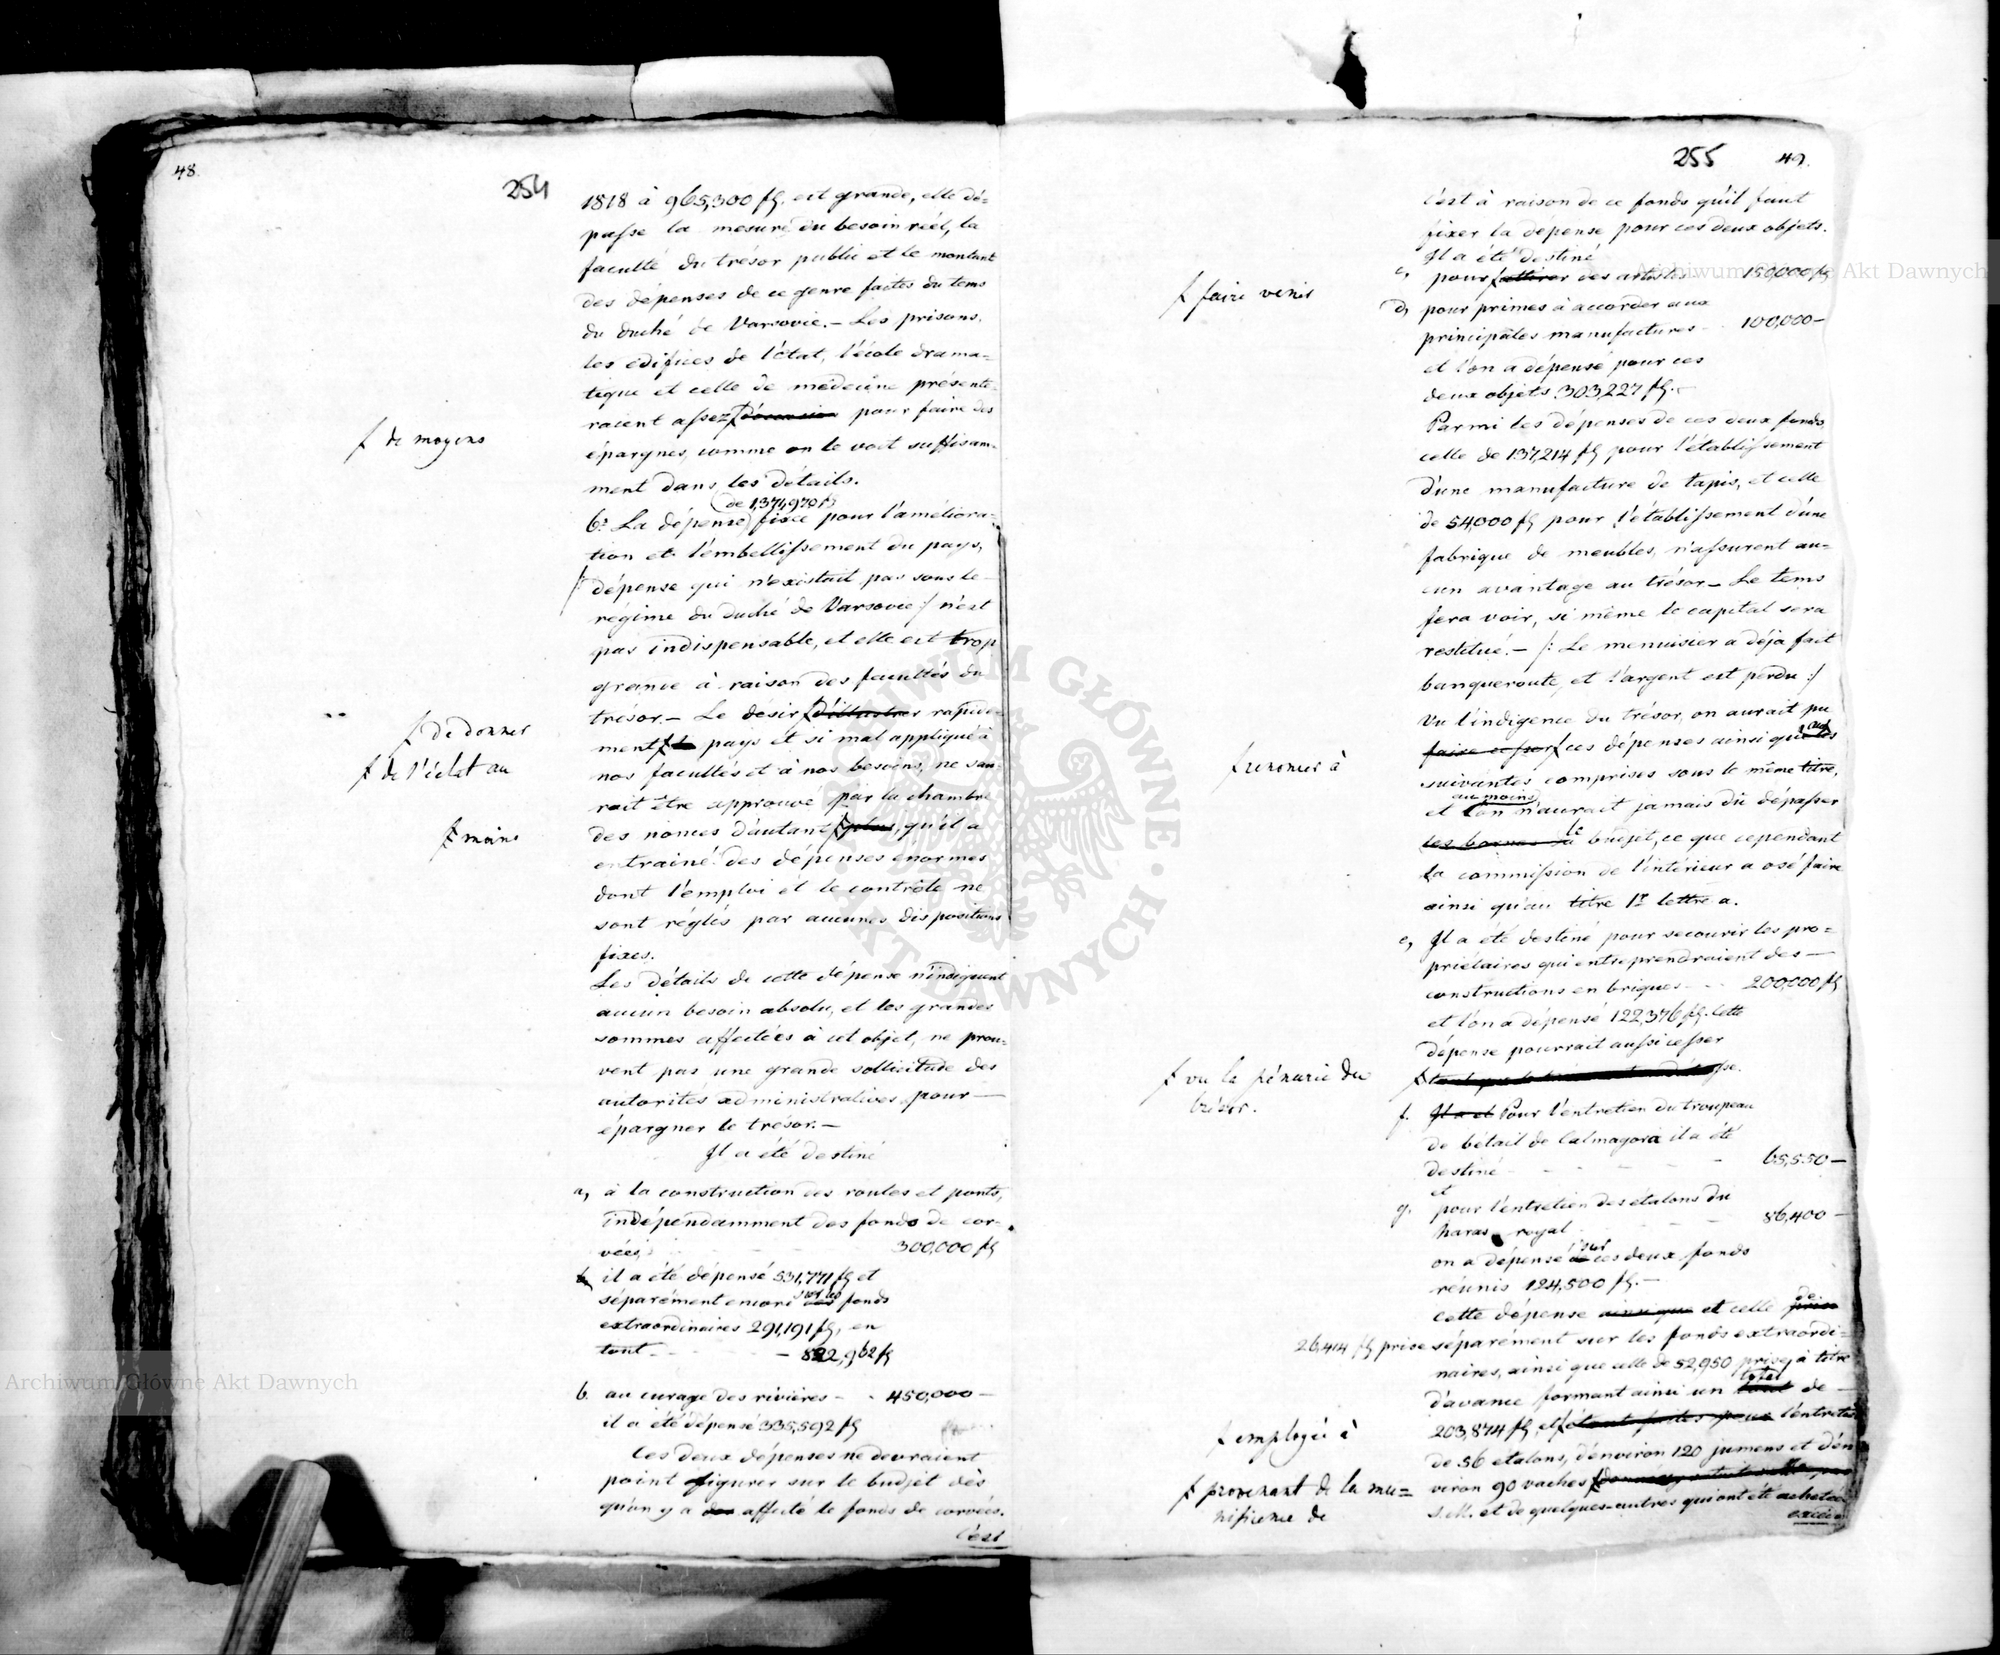 48.
254
1818 à 965,300 fl. est grande, elle dé=
passe la mesure du besoin réel, la
faculté du trésor public et le montant
des dépenses de ce genre faites du tems
du duché de Varsovie.— Les prisons,
les édifices de l'état, l'école drama=
tique et celle de médecine présente-
raient assez d'occasion pour faire des
f de moyens
épargnes, comme on le voit suffisam-
ment dans les détails.
(de 1,371,970 fl)
6º La dépense fixée pour l'améliora-
tion et l'embellissement du pays,
/: dépense qui n'existait pas sous le
régime du duché de Varsovie :/ n'est
pas indispensable, et elle est trop
grande à raison des facultés du
trésor.— Le desir f d'illustrer rapide-
f de donner
ment f le pays et si mal appliqué à
f de l'éclat au
nos facultés et à nos besoins, ne sau-
rait être approuvé par la chambre
des nonces d'autant f plus, qu'il a
f moins
entrainé des dépenses énormes
dont l'emploi et le contrôle ne
sont réglés par aucunes dispositions
fixes.
Les détails de cette dépense n'indiquent
aucun besoin absolu, et les grandes
sommes affectées à cet objet, ne prou-
vent pas une grande sollicitude des
autorités administratives pour —
épargner le trésor.—
Il a été destiné
a, à la construction des routes et ponts,
indépendamment des fonds de cor-
vées, 300,000 fl
il a été dépensé 531,771 fl et
séparément encore sur les fonds
extraordinaires 291,191 fl, en
tout — 822,962 fl
b. au curage des rivières — 450,000 —
il a été dépensé 335,592 fl
Ces deux dépenses ne devraient
point figurer sur le budjet dès
qu'on y a des affecté le fonds de corvées.
C'est
255
49.
C'est à raison de ce fonds qu'il faut
fixer la dépense pour ces deux objets.
Il a été destiné
c, pour f attirer des artistes 150,000 fl
f faire venir
d, pour primes à accorder aux
principales manufactures 100,000 —
et l'on a dépensé pour ces
deux objets 303,227 fl.—
Parmi les dépenses de ces deux fonds
celle de 137,214 fl pour l'établissement
d'une manufacture de tapis, et celle
de 54,000 fl pour l'établissement d'une
fabrique de meubles, n'assurent au=
cun avantage au trésor — Le tems
fera voir, si même le capital sera
restitué.— /: Le menuisier a déja fait
banqueroute, et l'argent est perdu :/
Vu l'indigence du trésor, on aurait pu
faire cesser f ces dépenses ainsi qu'aux les
f renoncer à
suivantes comprises sous le même titre,
au moins
et l'on n'aurait jamais dû dépasser
les bornes du le budjet, ce que cependant
la commission de l'intérieur a osé faire
ainsi qu'au titre 1r lettre a.
e, Il a été destiné pour secourir les pro=
priétaires qui entreprendraient des —
constructions en briques 200,000 fl
et l'on a dépensé 122,376 fl. Cette
dépense pourrait aussi cesser
f vu la pénurie du
trésor.
f. Il a et Pour l'entretien du troupeau
de bétail de Calmagora il a été
destiné 65,550 —
et
g. pour l'entretien des étalons du
haras royal 86,400 —
on a dépensé sur ces deux fonds
réunis 124,500 fl.—
Cette dépense ainsi que et celle de prise
26,414 fl prise séparément sur les fonds extraordi=
naires, ainsi que celle de 52,950 prise à titre
d'avance formant ainsi un total tout de —
203,874 fl, est f étant faites pour l'entretien
f employée à
de 56 étalons, d'environ 120 jumens et d'en
viron 90 vaches f
f provenant de la mu=
nificence de
S. M. et de quelques-autres qui ont été achetées
Archiwum Główne Akt Dawnych
Archiwum Główne Akt Dawnych
ARCHIWUM GŁÓWNE · AKT DAWNYCH ·